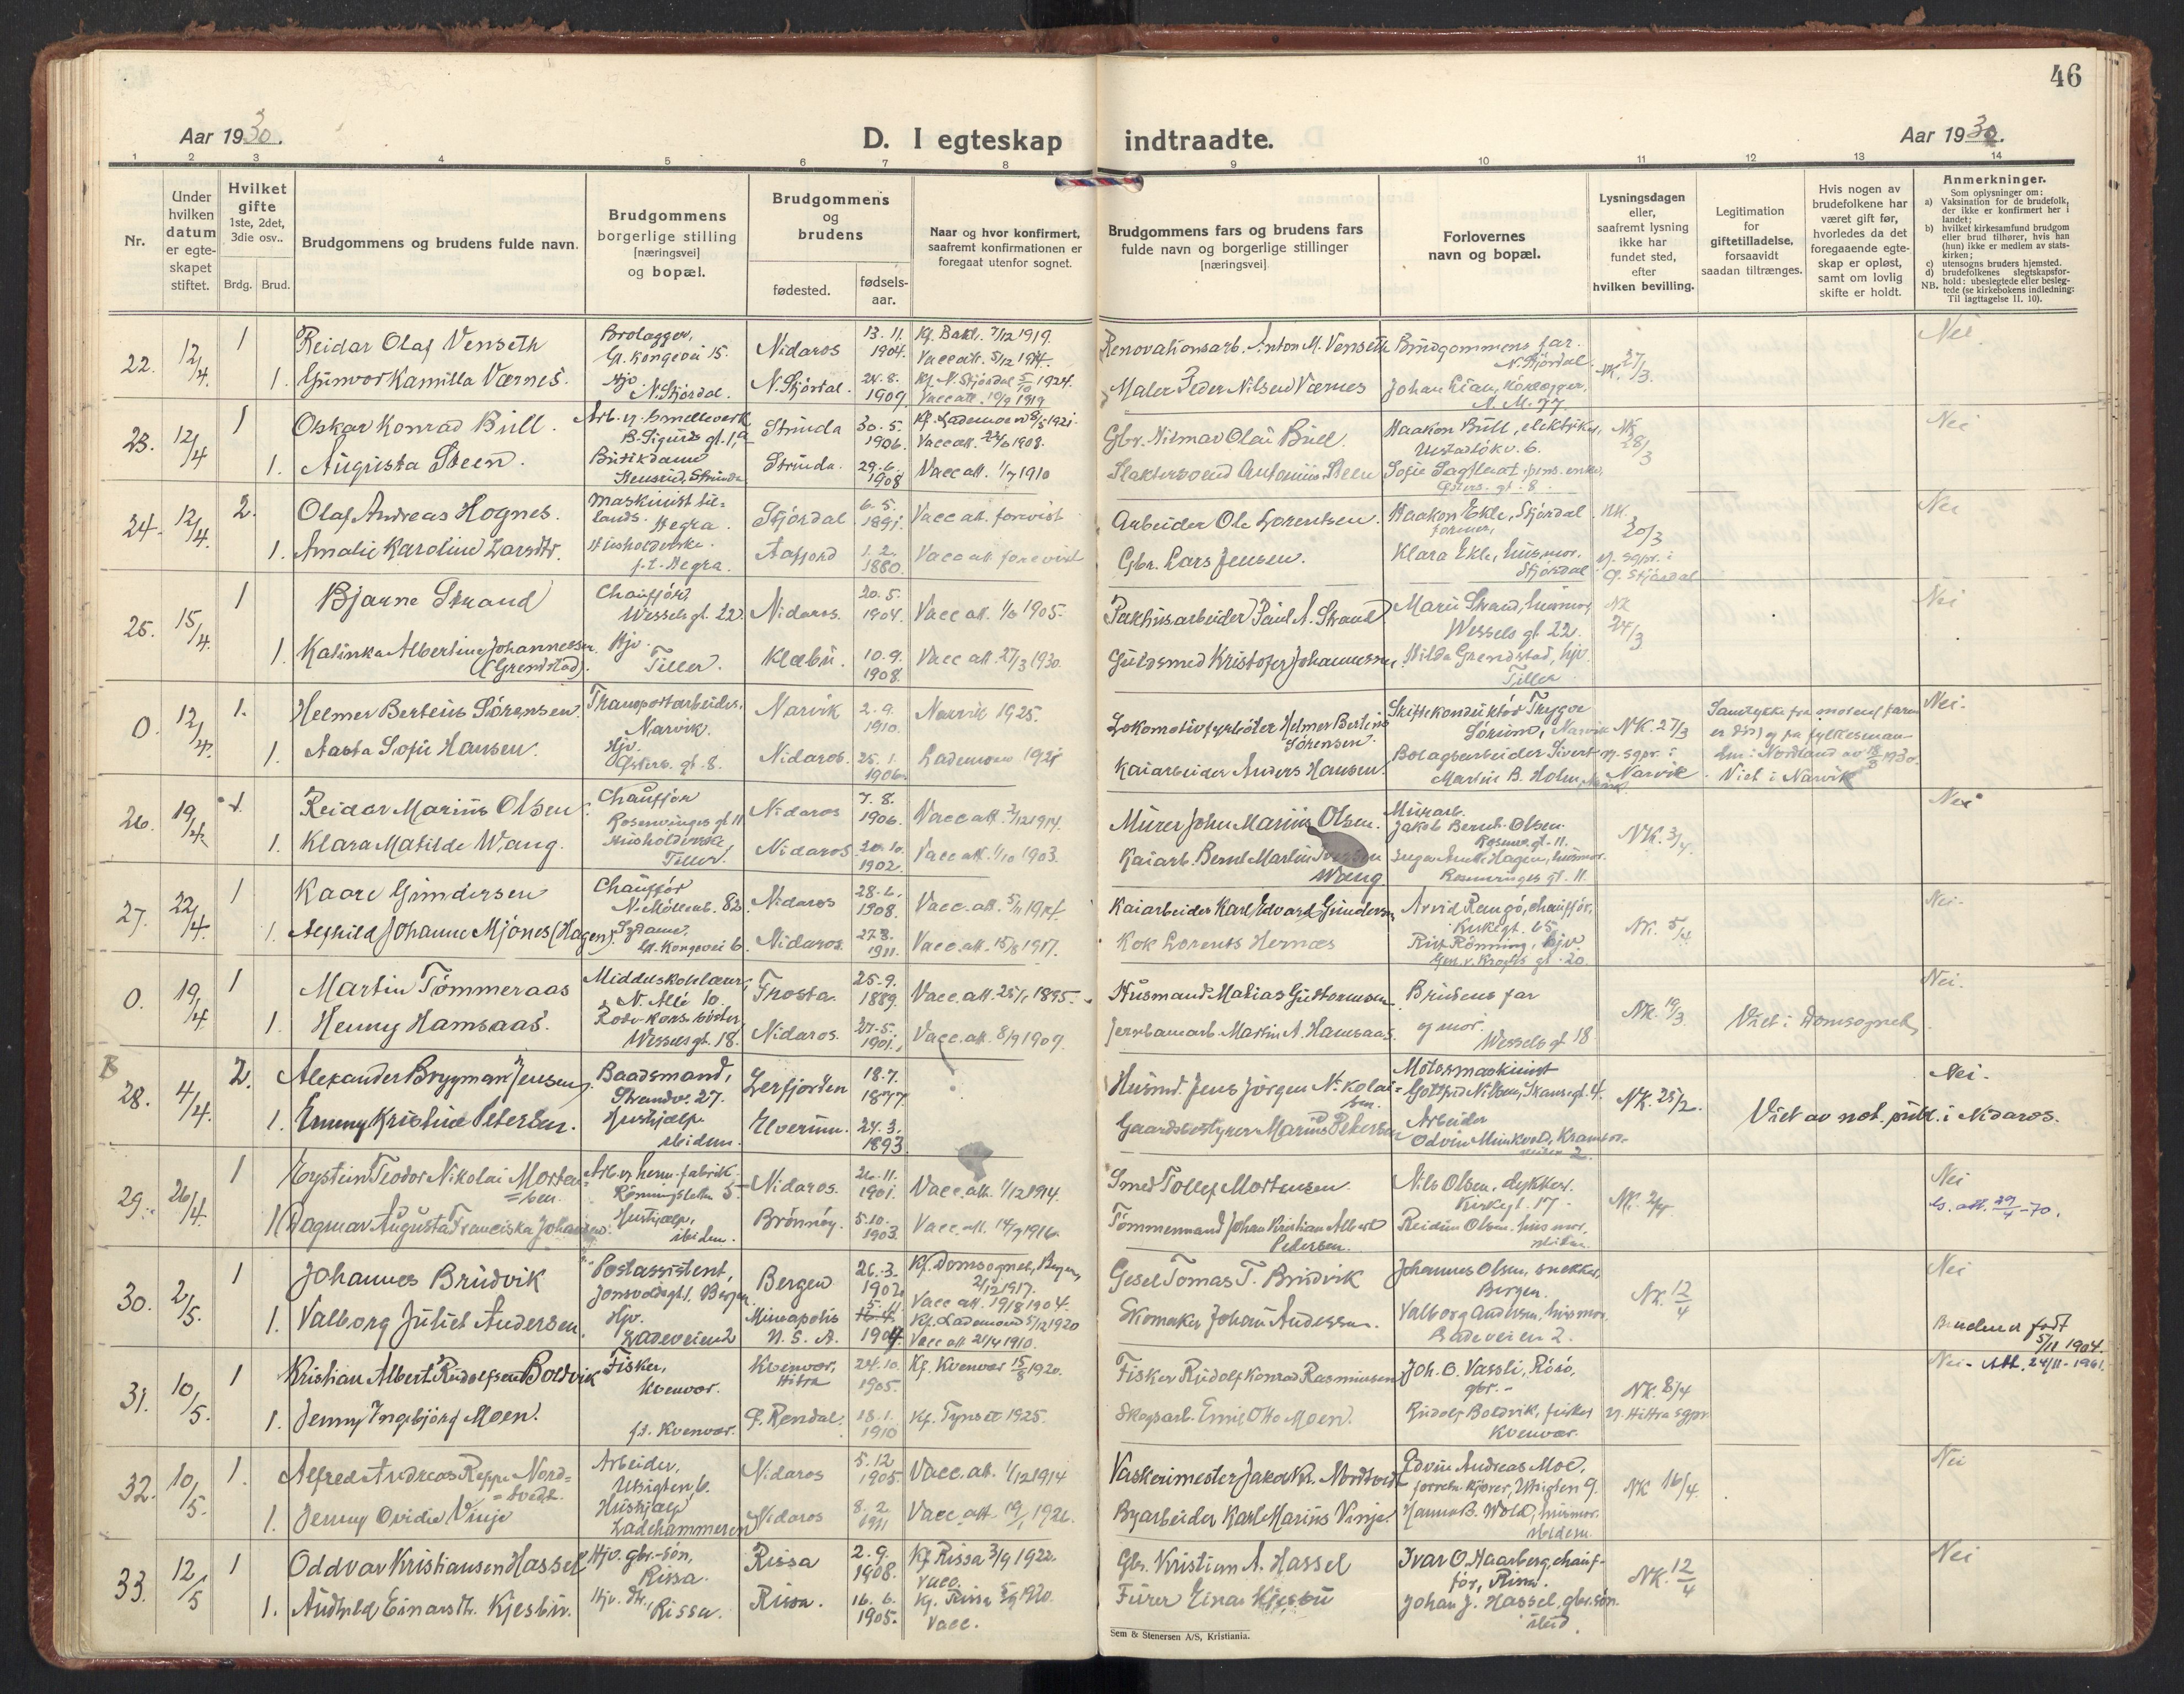 46
Aar 1930.
D. I egteskap indtraadte.
Aar 1930.
1 2 3 4 5 6 7 8 9 10 11 12 13 14
Nr.
Under hvilken datum er egteskapet stiftet.
Hvilket gifte 1ste, 2det, 3die osv..
Brdg. Brud.
Brudgommens og brudens fulde navn.
Brudgommens borgerlige stilling [næringsvei] og bopæl.
Brudgommens og brudens
fødested.
fødsels-aar.
Naar og hvor konfirmert, saafremt konfirmationen er foregaat utenfor sognet.
Brudgommens fars og brudens fars fulde navn og borgerlige stillinger [næringsvei]
Forlovernes navn og bopæl.
Lysningsdagen eller, saafremt lysning ikke har fundet sted, efter hvilken bevilling.
Legitimation for giftetilladelse, forsaavidt saadan tiltrænges.
Hvis nogen av brudefolkene har været gift før, hvorledes da det foregaaende egteskap er opløst, samt om lovlig skifte er holdt.
Anmerkninger.
Som oplysninger om:
a) Vaksination for de brudefolk, der ikke er konfirmert her i landet;
b) hvilket kirkesamfund brudgom eller brud tilhører, hvis han (hun) ikke er medlem av statskirken;
c) utensogns bruders hjemsted.
d) brudefolkenes slegtskapsforhold: ubeslegtede eller beslegtede (se kirkebokens indledning: Til Iagttagelse II. 10).
NB.
22. 12/4. 1 Reidar Olaf Venseth Brolægger, Gl. Kongevei 15. Nidaros 13. 11. 1904. Kf. Bakl. 7/12 1919. Vacc att. 5/12 1914. Renovationsarb. Anton M. Venseth Brudgommens far. N. Stjórdal. NK. 27/3. Nei.
1. Gunvor Kamilla Værnes. Hjv. N. Stjórdal. N. Stjórdal. 24. 8. 1909 Kf. N. Stjórdal 5/10 1924. Vacc att. 10/9 1919 Maler Peder Nilsen Værnes
23. 12/4 1 Oskar Konrad Büll. B. Sigurds gt. 1, a Strinda 30. 5. 1906. Kf. Lademoen 8/5 1921. Gbr. Hilmar Olai Büll. Haakon Büll, elektriker, NK 28/3 Nei
1. Augusta Steen. Butikdame Strinda. 29. 6. 1908 Vacc att. 1/7 1910
24. 12/4. 2. Olaf Andreas Hognes. Maskinist tillands. Hegra. Stjórdal 6. 5. 1891. Vacc att. forevist Arbeider Ole Lorentsen. Haakon Ekle, Stjórdal NK. 20/3 Nei
1. Amalie Karoline Larsdtr. Husholderske. p.t. Hegra. Aafjord 1. 2. 1880. Vacc att. forevist Gbr. Lars Jensen. Klara Ekle, husmor. Stjórdal
25. 15/4. 1 Bjarne Strand Chauffór, Wessels gt. 22. Nidaros. 20. 5. 1904. Vacc att. 1/6 1905. Pakhusarbeider Paul A. Strand Marie Strand, husmor, Wessels gt 22. NK 24/3 Nei
1. Kalinka Albertine Johannessen (Grendstad). Hjv. Tiller. Klæbu. 10. 9. 1908. Vacc att. 27/3 1930. Guldsmed Kristofer Johannessen. Hilda Grendstad, hjv. Tiller
0. 12/4. 1. Helmer Berteus Sórensen. Transportarbeider, Narvik. Narvik 2. 9. 1910. Narvik 1925. Lokomotivfyrbóter Helmer Berteus Sórensen. Skiftekonduktór Trygve Sórum, Narvik NK. 27/3 Nei.
1. Aasta Sofie Hansen. Hjv. Østerb. gt. 8. Nidaros. 25. 1. 1906. Lademoen 1921 Kaiarbeider Anders Hansen. Bolagsarbeider Sivert Martin B. Holm og sgpr. i Narvik. Viet i Narvik
26. 19/4. 1. Reidar Marius Olsen. Chauffór Rosenvinges gt 11 Nidaros 7. 8. 1906. Vacc att. 2/12 1914. Murer John Marius Olsen. Murarb. Jakob Bernt Olsen. Rosenv. gt. 11. NK. 3/4. Nei
1. Klara Matilde Wang. Husholderske Tiller. Nidaros 20. 10. 1902. Vacc att. 1/10 1903. Kaiarb. Bernt Martin Wang Rosenvinges gt. 11.
27. 22/4. 1 Kaare Gundersen Chauffór N. Móllenb. 82. Nidaros 28. 6. 1908. Vacc. att. 5/11 1914. Kaiarbeider Karl Edvard Gundersen Arvid Rangó, chauffór, Kirkegt. 65. NK. 5/4 Nei.
1. Aeshild Johanne Mjónes (Hagen). Sydame, Gl. Kongevei 6. Nidaros. 27. 8. 1911. Vacc. att. 15/8 1917. Kok Lorents Hernæs Rut Rónning, hjv. Gen. v. Kroghs gt. 20.
0. 19/4 1 Martin Tómmeraas Middelskolelærer, N. Allé 10. Frosta. 25. 9. 1889 Vacc. att. 25/1 1895. Husmand Matias Guttormsen. Brudens far NK. 19/3 Viet i Domsognet. Nei.
1. Henny Hamsaas. Róde kors sóster, Wessels gt. 18. Nidaros. 27. 5. 1901. Vacc. att. 8/9 1909. Jernbanearb. Martin A. Hamsaas. og mor. Wessels gt 18
B
28. 4/4. 2. Alexander Brygman Jensen. Baadsmand, Strandv. 27. Lerfjorden 18. 7. 1877. Husmd. Jens Jórgen Nikolaisen. Motormaskinist Skansegt. 4. NK. 25/2. Viet av not. publ. i Nidaros. Nei.
1. Emmy Kristine Petersen. Hushjælp ibidem. Elverum. 24. 3. 1893. Gaardsbestyrer Marius Petersen Arbeider Odvin Munkvold,
29. 26/4. 1 Eystein Teodor Nikolai Mortensen. Arb. v. herm. fabrik Rónningsletta 5. Nidaros. 26. 11. 1901. Vacc. att. 1/12 1914. Smed Tollef Mortensen. Nils Olsen, dykker. Kirkegt. 17. NK. 2/4. Nei
ls. att. 29/4-70.
1 Dagmar Augusta Franciska Johansen. Hushjælp, ibidem. Brónnóy. 5. 10. 1903. Vacc. att. 14/9 1916. Tómmermand Johan Kristian Albert Pedersen. Reidun Olsen, husmor, ibidem.
30. 2/5. 1 Johannes Brudvik Postassistent, Bergen. Bergen 26. 3. 1902 Kf. Domsognet, Bergen, 2/12 1917. Vacc att. 19/8 1904. Gesel Tomas T. Brudvik Johannes Olsen, snekker, Bergen. NK. 12/4 Nei
1. Valborg Juliet Andersen. Hjv. Ladeveien 2 Mineapolis U. S. A. 1904. Kf. Lademoen 5/12 1920 Vacc att 21/4 1910. Skomaker Johan Andersen. Valborg Andersen, husmor, Ladeveien 2. Bruden er født 5/11 1904.
31. 10/5. 1 Kristian Albert Rudolfsen Boldvik Fisker, Kvenvær. Kvenvær, Hitra 24. 10. 1905. Kf. Kvenvær 15/8 1920. Fisker Rudolf Konrad Rasmussen Joh. O. Vassli, gbr. NK. 8/4 Nei - Att. 24/11-1961.
1. Jenny Ingebjórg Moen. p.t. Kvenvær. Ø. Rendal. 18. 1. 1910 Kf. Tynset 1925. Skogsarb. Emil Otto Moen. Rudolf Boldvik, fisker Kvenvær. og Hitra sgpr.
32. 10/5. 1. Alfred Andreas Reppe Nordtvedt. Arbeider, Utsigten 6. Nidaros 5. 12 1905. Vacc. att. 1/12 1914 Vaskerimester Jakob Kr. Nordtvedt Edvin Andreas Moe, Utsigten 9. NK 16/4. Nei
1. Jenny Ovidie Vinje Hushjælp Ladehammeren Nidaros 8. 2 1911 Vacc. att. 19/1 1926. Byarbeider Karl Marius Vinje. Hanna B. Wold, husmor. ibidem
33. 12/5 1 Oddvar Kristiansen Hassel Hjv. gbr.-søn, Rissa. Rissa 2. 9. 1908. Kf. Rissa 3/9 1922. Vacc. Gbr. Kristian A. Hassel Ivar O. Haarberg, chauffór, Rissa. NK. 12/4 Nei
1. Audhild Einarsdtr. Kjesbu. Hjv. dtr., Rissa. Rissa. 16. 6. 1905. Kf. Rissa 5/9 1920. Vacc. Furer Einar Kjesbu Johan J. Hassel, gbr.søn. ibid.
Sem & Stenersen A/S, Kristiania.